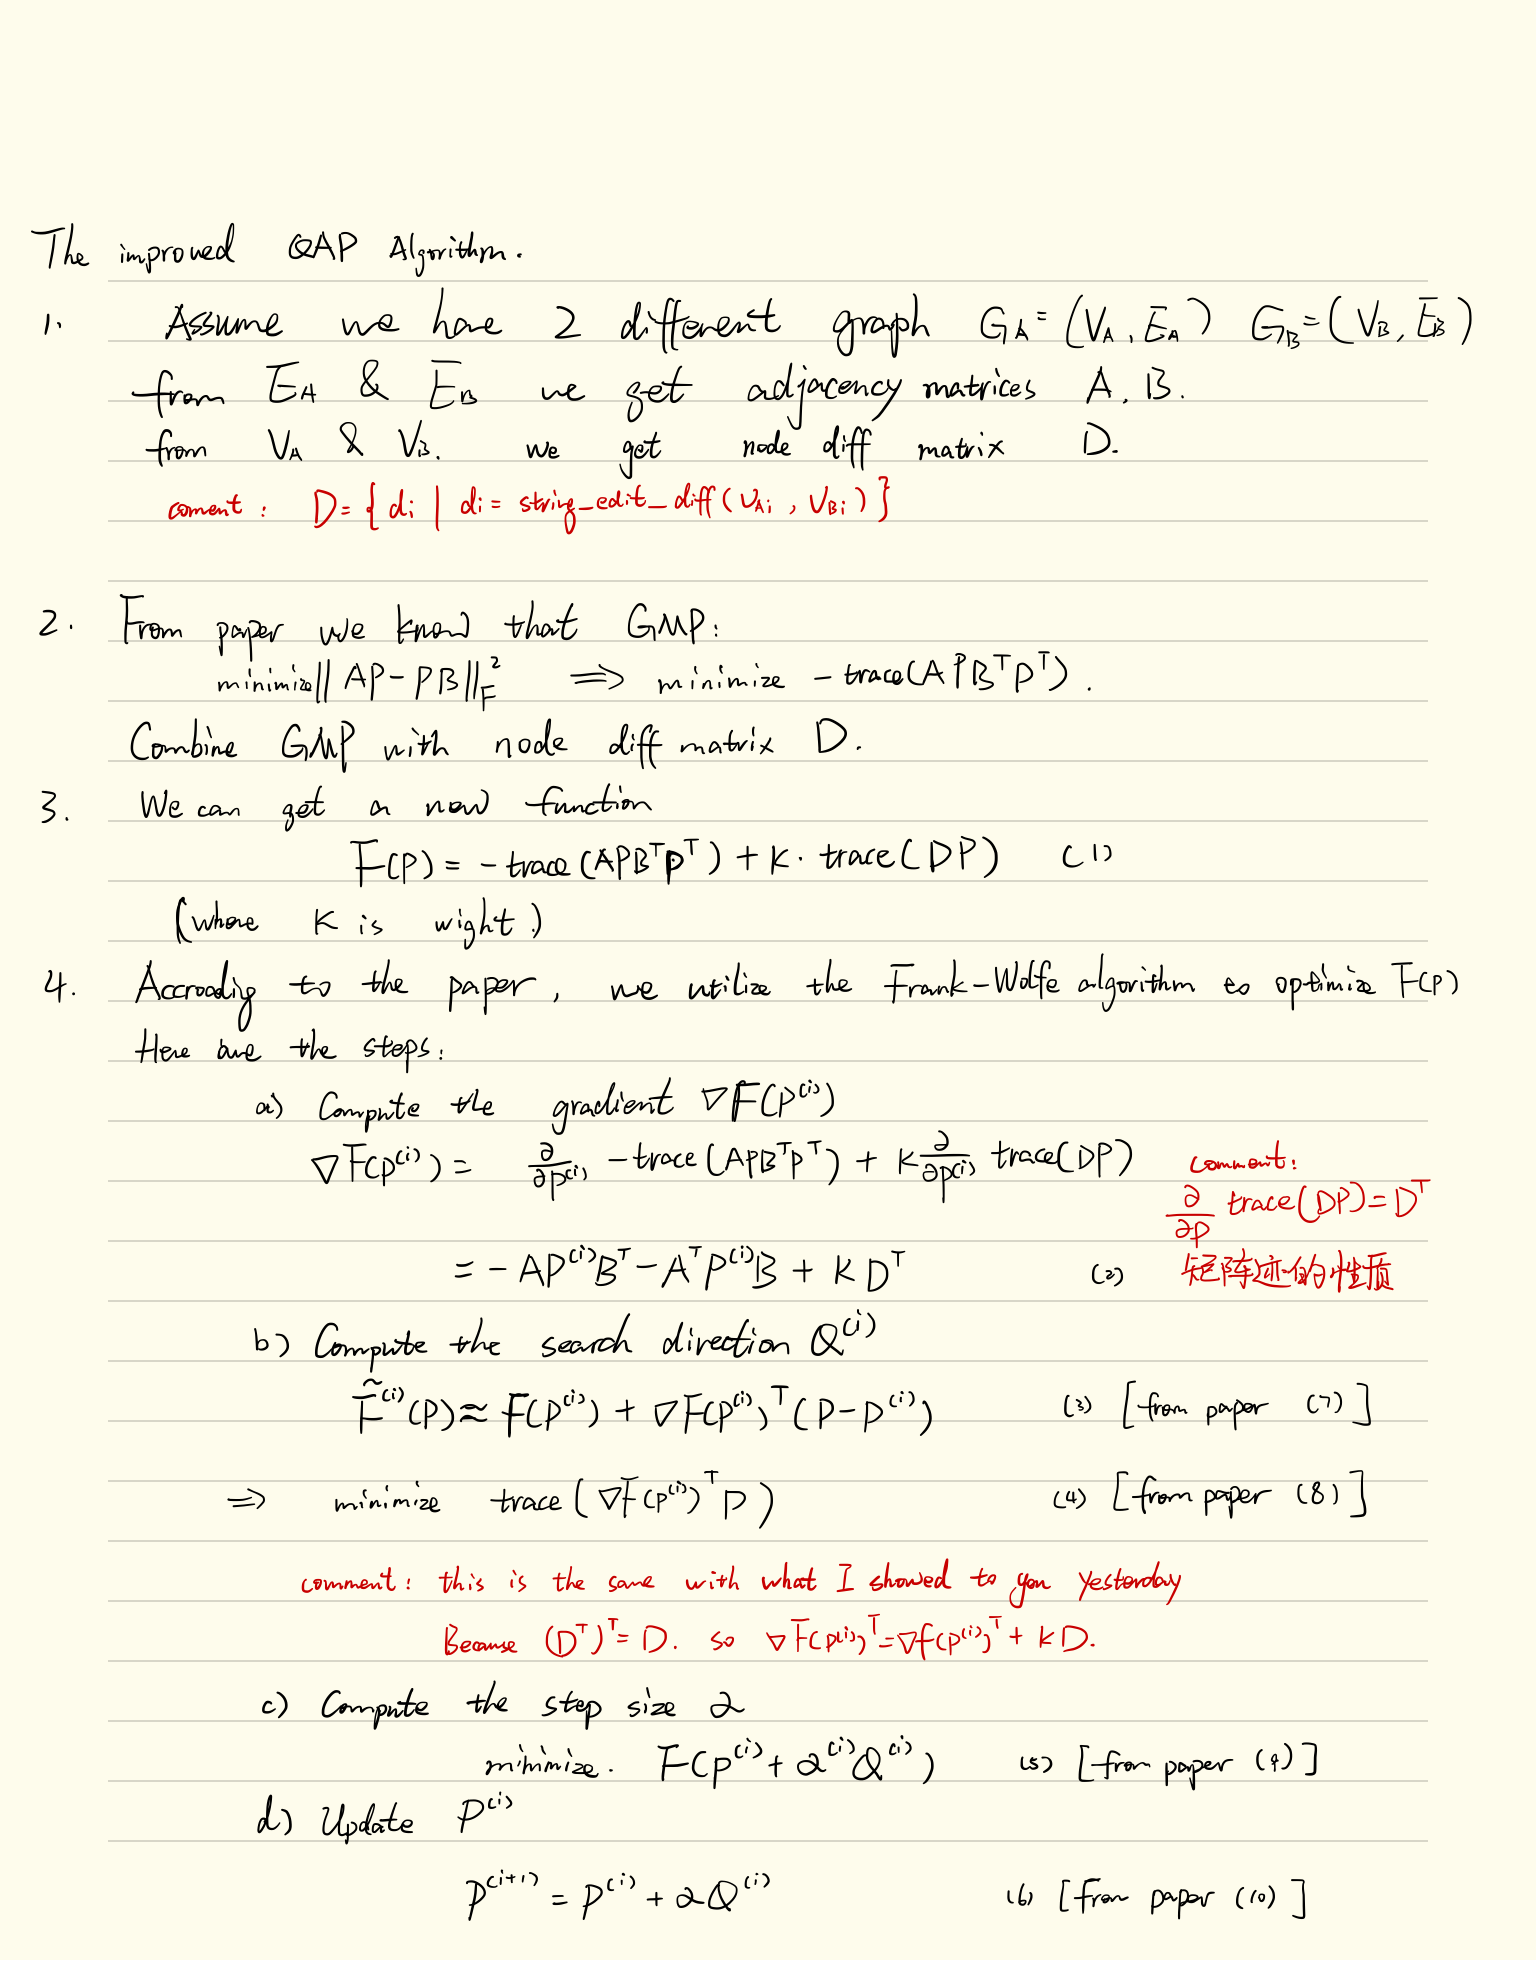 The improved QAP Algorithm.
1. Assume we have 2 different graph G_A = (V_A, E_A) G_B = (V_B, E_B)
from E_A & E_B we get adjacency matrices A, B.
from V_A & V_B. we get node diff matrix D.
coment : D = { di | di = string_edit_diff (V_Ai , V_Bi) }
2. From paper we know that GMP:
minimize || AP - PB ||_F^2 ⟹ minimize - trace(APB^T P^T).
Combine GMP with node diff matrix D.
3. We can get a new function
F(P) = - trace (APB^T P^T) + K · trace (DP) (1)
(where K is wight.)
4. Accroadiy to the paper, we utilize the Frank-Wolfe algorithm to optimize F(P)
Here are the steps:
a) Compute the gradient ∇F(P^(i))
∇F(P^(i)) = ∂/∂P^(i) - trace (APB^T P^T) + K ∂/∂P^(i) trace(DP)
comment:
∂/∂P trace(DP) = D^T
= - AP^(i)B^T - A^T P^(i)B + K D^T (2)
矩阵迹的性质
b) Compute the search direction Q^(i)
F̃^(i)(P) ≈ F(P^(i)) + ∇F(P^(i))^T (P - P^(i)) (3) [from paper (7)]
⟹ minimize trace (∇F(P^(i))^T P) (4) [from paper (8)]
comment : this is the same with what I showed to you yesterday
Because (D^T)^T = D. so ∇F(P^(i))^T = ∇f(P^(i))^T + K D.
c) Compute the step size α
minimize. F(P^(i) + α^(i)Q^(i)) (5) [from paper (9)]
d) Update P^(i)
P^(i+1) = P^(i) + αQ^(i) (6) [from paper (10)]